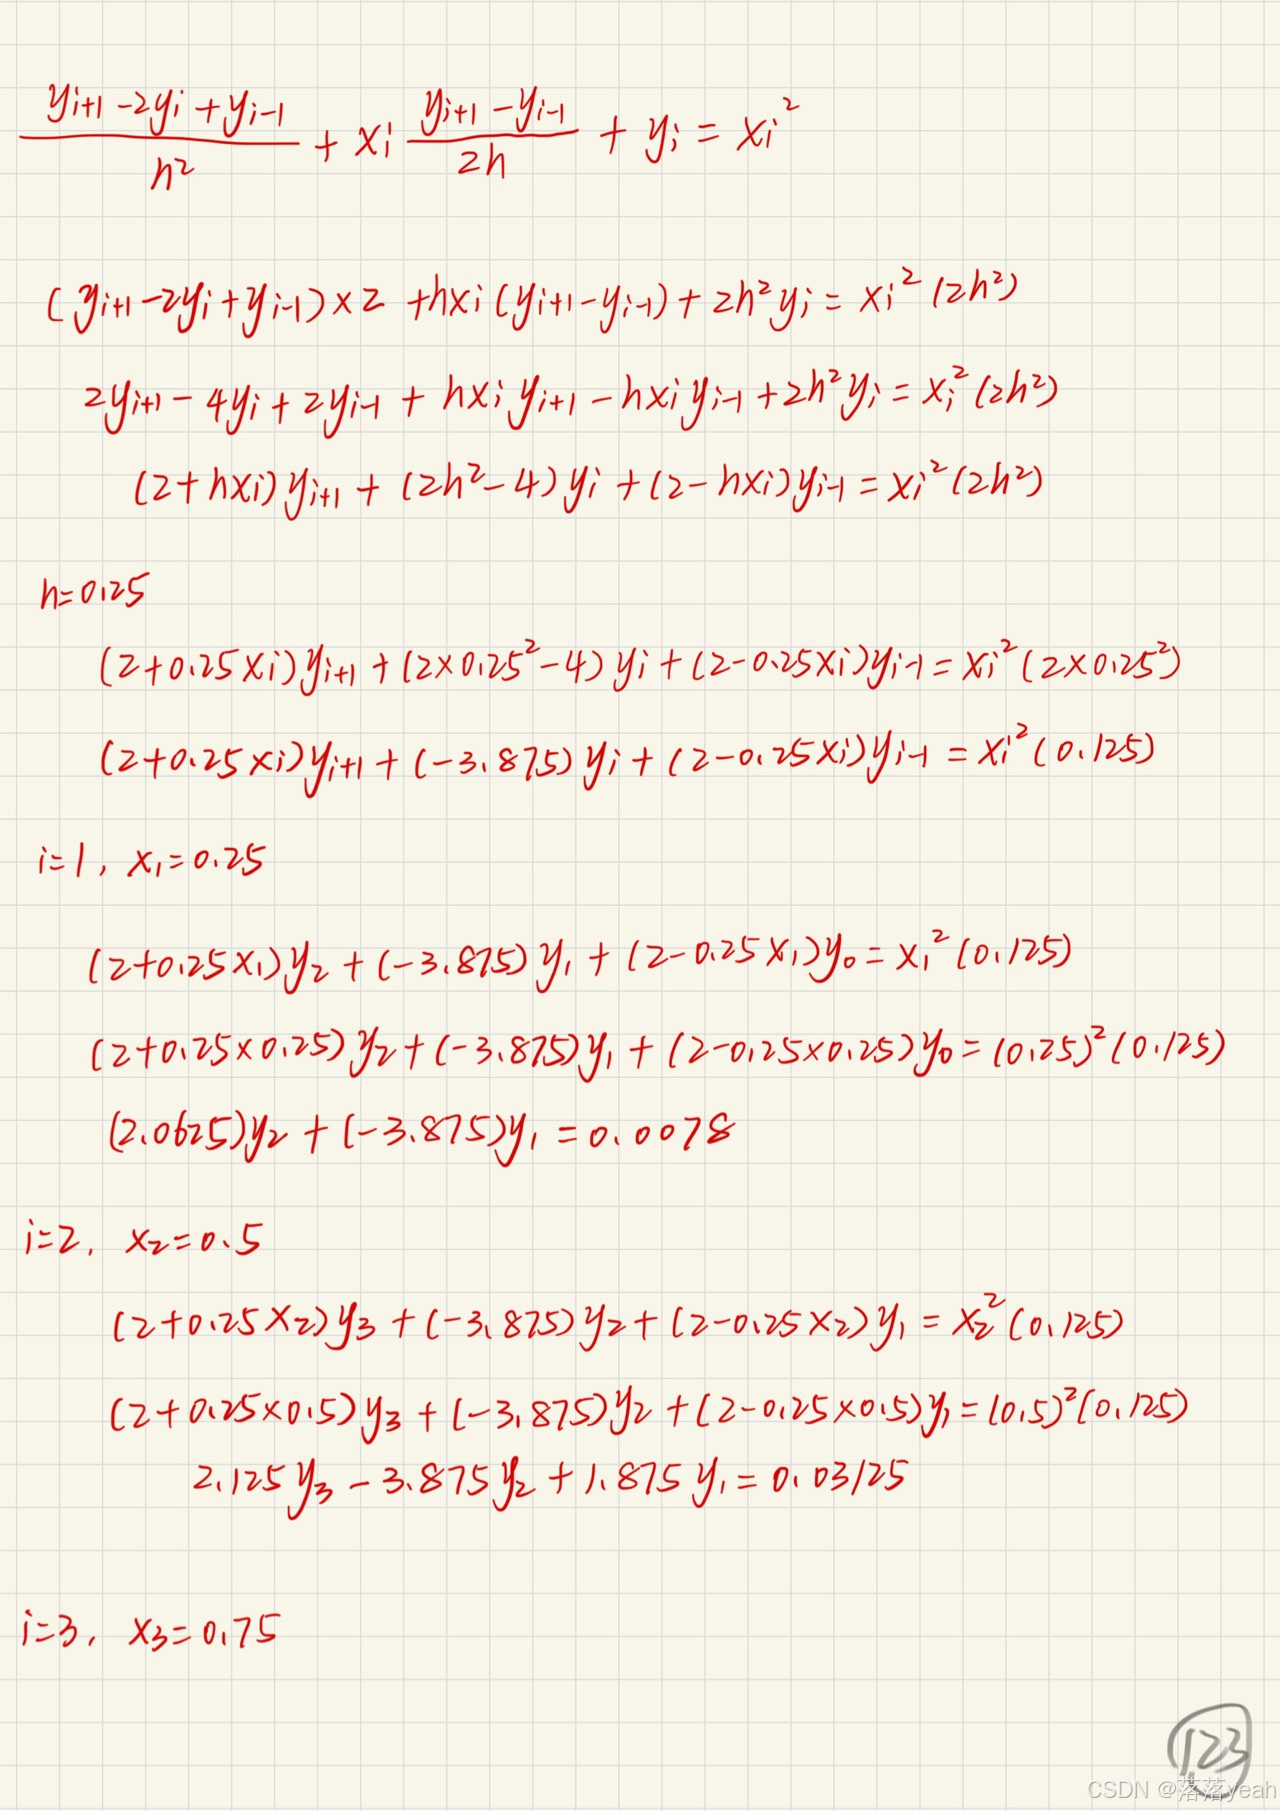 (y_{i+1} - 2y_i + y_{i-1}) / h² + x_i (y_{i+1} - y_{i-1}) / 2h + y_i = x_i²
(y_{i+1} - 2y_i + y_{i-1}) × 2 + hx_i (y_{i+1} - y_{i-1}) + 2h² y_i = x_i² (2h²)
2y_{i+1} - 4y_i + 2y_{i-1} + hx_i y_{i+1} - hx_i y_{i-1} + 2h² y_i = x_i² (2h²)
(2 + hx_i) y_{i+1} + (2h² - 4) y_i + (2 - hx_i) y_{i-1} = x_i² (2h²)
h = 0.25
(2 + 0.25x_i) y_{i+1} + (2 × 0.25² - 4) y_i + (2 - 0.25x_i) y_{i-1} = x_i² (2 × 0.25²)
(2 + 0.25x_i) y_{i+1} + (-3.875) y_i + (2 - 0.25x_i) y_{i-1} = x_i² (0.125)
i = 1, x_1 = 0.25
(2 + 0.25x_1) y_2 + (-3.875) y_1 + (2 - 0.25x_1) y_0 = x_1² (0.125)
(2 + 0.25 × 0.25) y_2 + (-3.875) y_1 + (2 - 0.25 × 0.25) y_0 = (0.25)² (0.125)
(2.0625) y_2 + (-3.875) y_1 = 0.0078
i = 2, x_2 = 0.5
(2 + 0.25x_2) y_3 + (-3.875) y_2 + (2 - 0.25x_2) y_1 = x_2² (0.125)
(2 + 0.25 × 0.5) y_3 + (-3.875) y_2 + (2 - 0.25 × 0.5) y_1 = (0.5)² (0.125)
2.125 y_3 - 3.875 y_2 + 1.875 y_1 = 0.03125
i = 3, x_3 = 0.75
123
CSDN @落落yeah